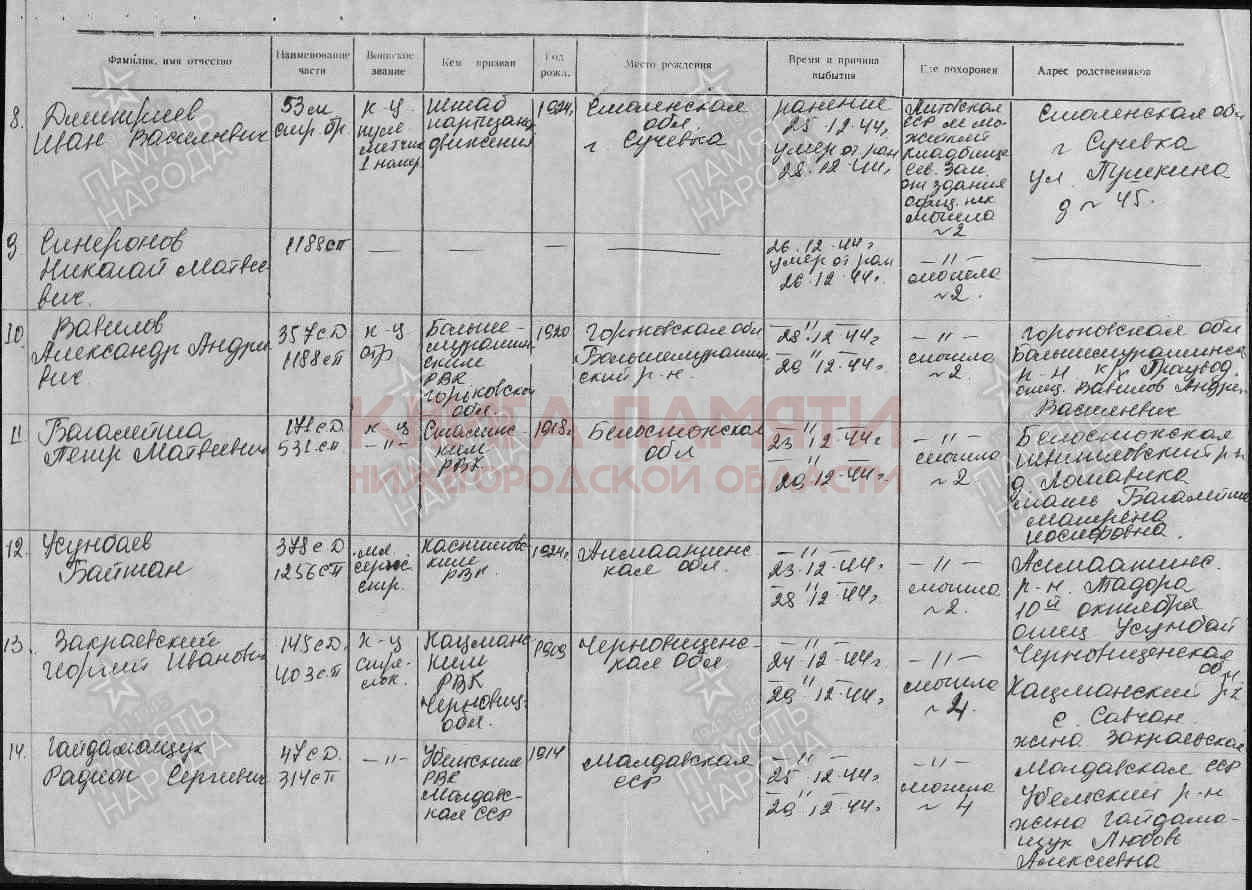 Фамилия, имя отчество
Наименование части
Воинское звание
Кем призван
Год рожд.
Место рождения
Время и причина выбытия
Где похоронен
Адрес родственников
8. Дмитриев
Иван Васильевич
53 см
стр. бр.
к-ц
пуле
метчик
1 номер
Штаб
партизан
движения
1924г
Смоленская
обл
г Сучевка
ранение
25.12.44г
умер от ран
28.12.44г
Литовская
ССР
кладбище
сев. зап.
от здания
могила
~2
Смоленская обл
г Сучевка
ул. Пушкина
д ~ 45.
9 Синеронов
Николай Матвее
вич.
1188 сп
—
—
—
—
26.12.44г
умер от ран
26.12.44г
— " —
могила
~2.
—
10. Вавилов
Александр Андре
вич
357 с Д
1188 сп
к-ц
стр
Больше-
мурашкин
ским
РВК
горьковской
обл.
1920
Горьковская обл
Большемурашкин
ский р-н.
— " —
28.12.44г
— " —
29.12.44г
— " —
могила
~2.
Горьковская обл
Большемурашкинск
р-н к/х Правод.
отец Вавилов Андрей
Василевич
11 Багалейша
Петр Матвеевич
171 с Д.
531 сп
к-ц
— " —
Сталинс-
ким
РВК
1918г
Белостокская
обл
— " —
23.12.44г
— " —
29.12.44г
— " —
могила
~2.
Белостокская
р-н
мать Багалейша
Матрена
Иосифовна.
12. Усунбаев
Байтан
378 с Д
1256 сп
мл.
серж
стр.
РВК.
1924г
Алмаатинс-
кая обл.
— " —
23.12.44г
— " —
28.12.44г
— " —
могила
~2.
Алмаатинс.
р-н. Тадора
10й октября
отец Усунбай
13. Закраевский
Георгий Иванович
145 с Д.
403 сп
к-ц
стре-
лок.
Кацманс
ким
РВК
Черновиц-
обл.
1909
Черновиценс-
кая обл
— " —
24.12.44г.
— " —
29.12.44г
— " —
могила
~ 4
Черновиценская
обл.
Кацманский р-н
с. Савчан.
жена Закраевская
14. Гайдамащук
Радион Сергиевич
47 с Д.
314 сп
— " —
РВК
Молдавс-
кая ССР
1914
Молдавская
ССР
— " —
25.12.44г
— " —
29.12.44г
— " —
могила
~ 4
Молдавская ССР
р-н
жена Гайдама-
щук Любовь
Алексеевна
КНИГА ПАМЯТИ
НИЖЕГОРОДСКОЙ ОБЛАСТИ
ПАМЯТЬ
НАРОДА
ПАМЯТЬ
НАРОДА
ПАМЯТЬ
НАРОДА
ПАМЯТЬ
НАРОДА
ПАМЯТЬ
НАРОДА
ПАМЯТЬ
НАРОДА